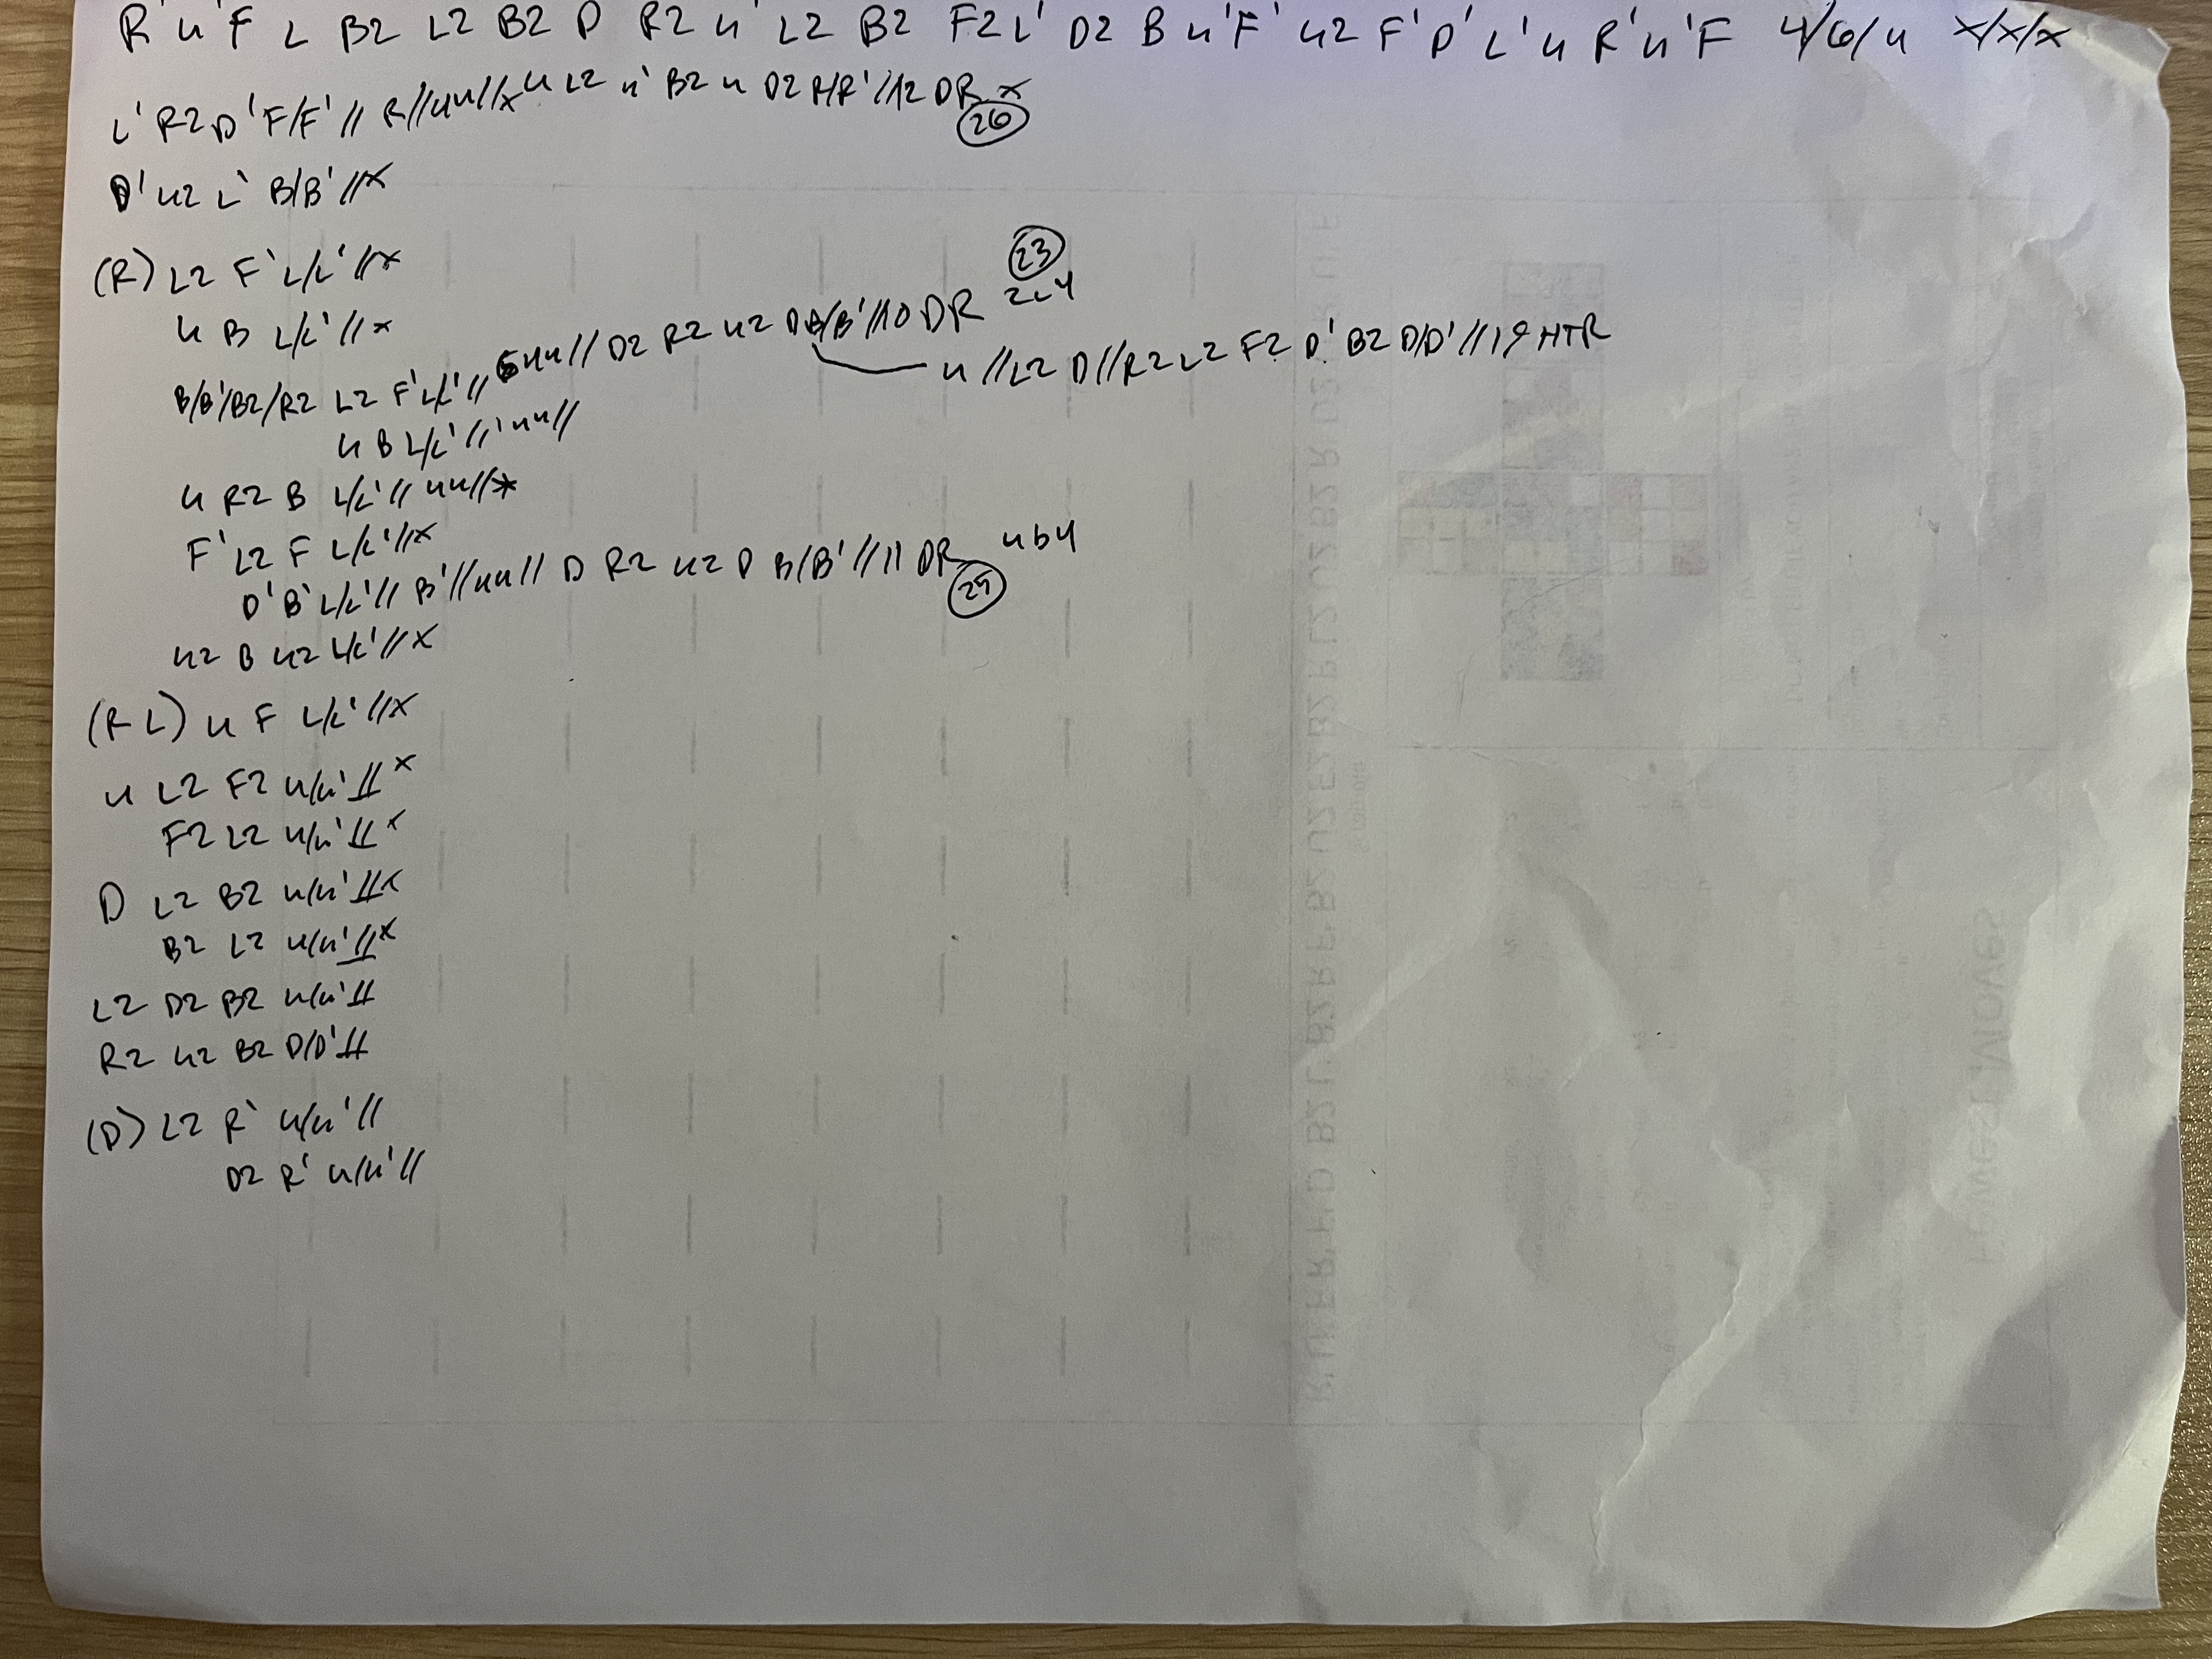 R' u' F L B2 L2 B2 D R2 u' L2 B2 F2 L' D2 B u' F' u2 F' D' L' u R' u' F 4/6/4 x/x/x
L' R2 D' F/F' // R//4u//x u L2 u' B2 u D2 R/R' //12 DR x
26
D' u2 L' B/B' //x
(R) L2 F' L/L' //x
23
u B L/L' //x
2c4
B/B'/B2/R2 L2 F' L/L' // 4u// D2 R2 u2 D B/B' //10 DR
u //L2 D //R2 L2 F2 D' B2 D/D' //19 HTR
u B L/L' // 4u//
u R2 B L/L' // 4u//x
F' L2 F L/L' //x
D' B' L/L' // B' //4u// D R2 u2 D B/B' //11 DR 4b4
25
u2 B u2 L/L' //x
(R L) u F L/L' //x
u L2 F2 u/u' // x
F2 L2 u/u' // x
D L2 B2 u/u' // x
B2 L2 u/u' // x
L2 D2 B2 u/u' //
R2 u2 B2 D/D' //
(D) L2 R' u/u' //
D2 R' u/u' //
Fewest Moves